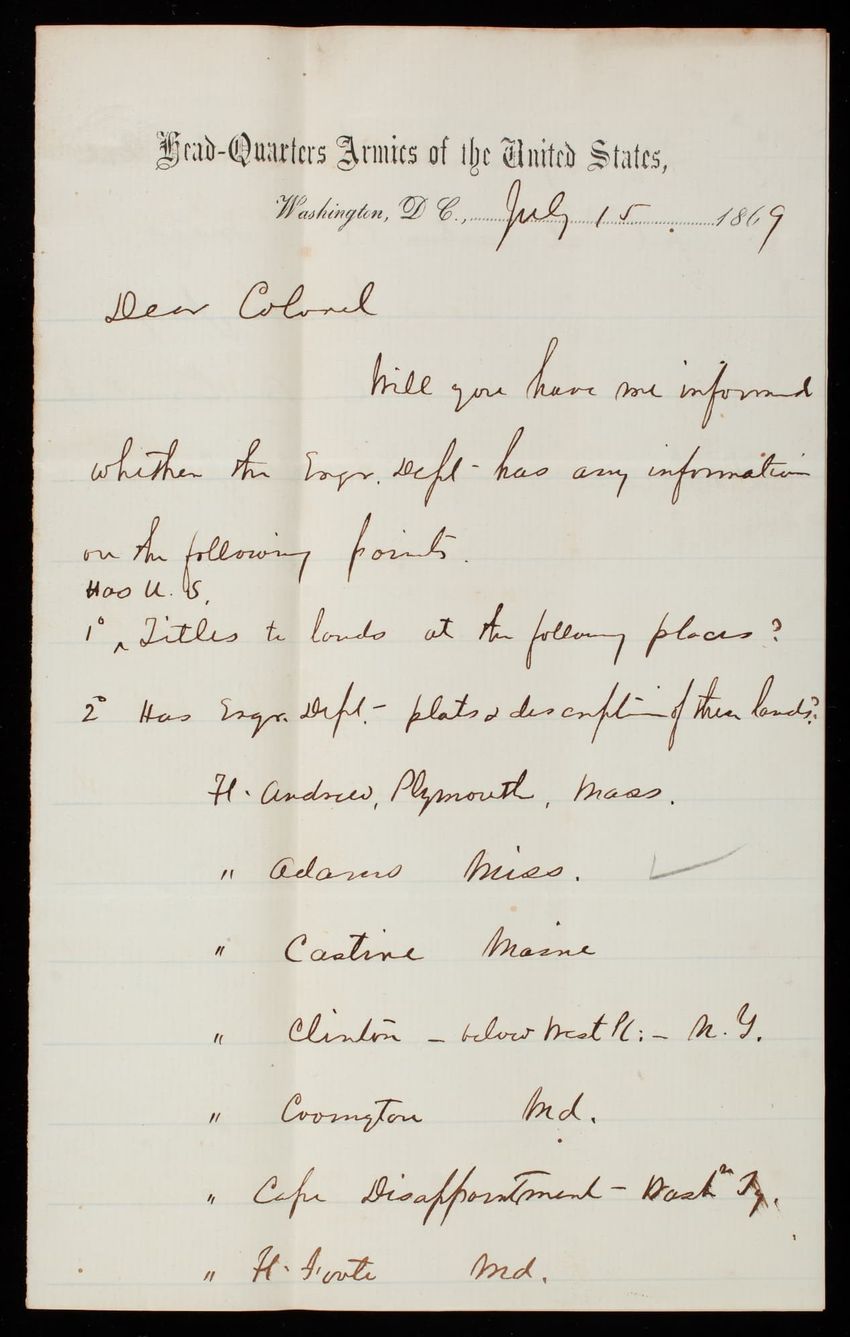 Head-Quarters Armies of the United States,
Washington, D C., July 15. 1869
Dear Colonel
Will you have me informed
whether the Engr. Dept - has any information
on the following points.
Has U. S.
1° ‸ Titles to lands at the following places?
2° Has Engr. Dept. - plats & description of these lands?
Ft. Andrew, Plymouth, Mass.
" Adams Miss.
" Castine Maine
" Clinton - below West Pt: - N. Y.
" Covington Md.
" Cape Disappointment - Washn Ty.
" Ft. Foote Md.